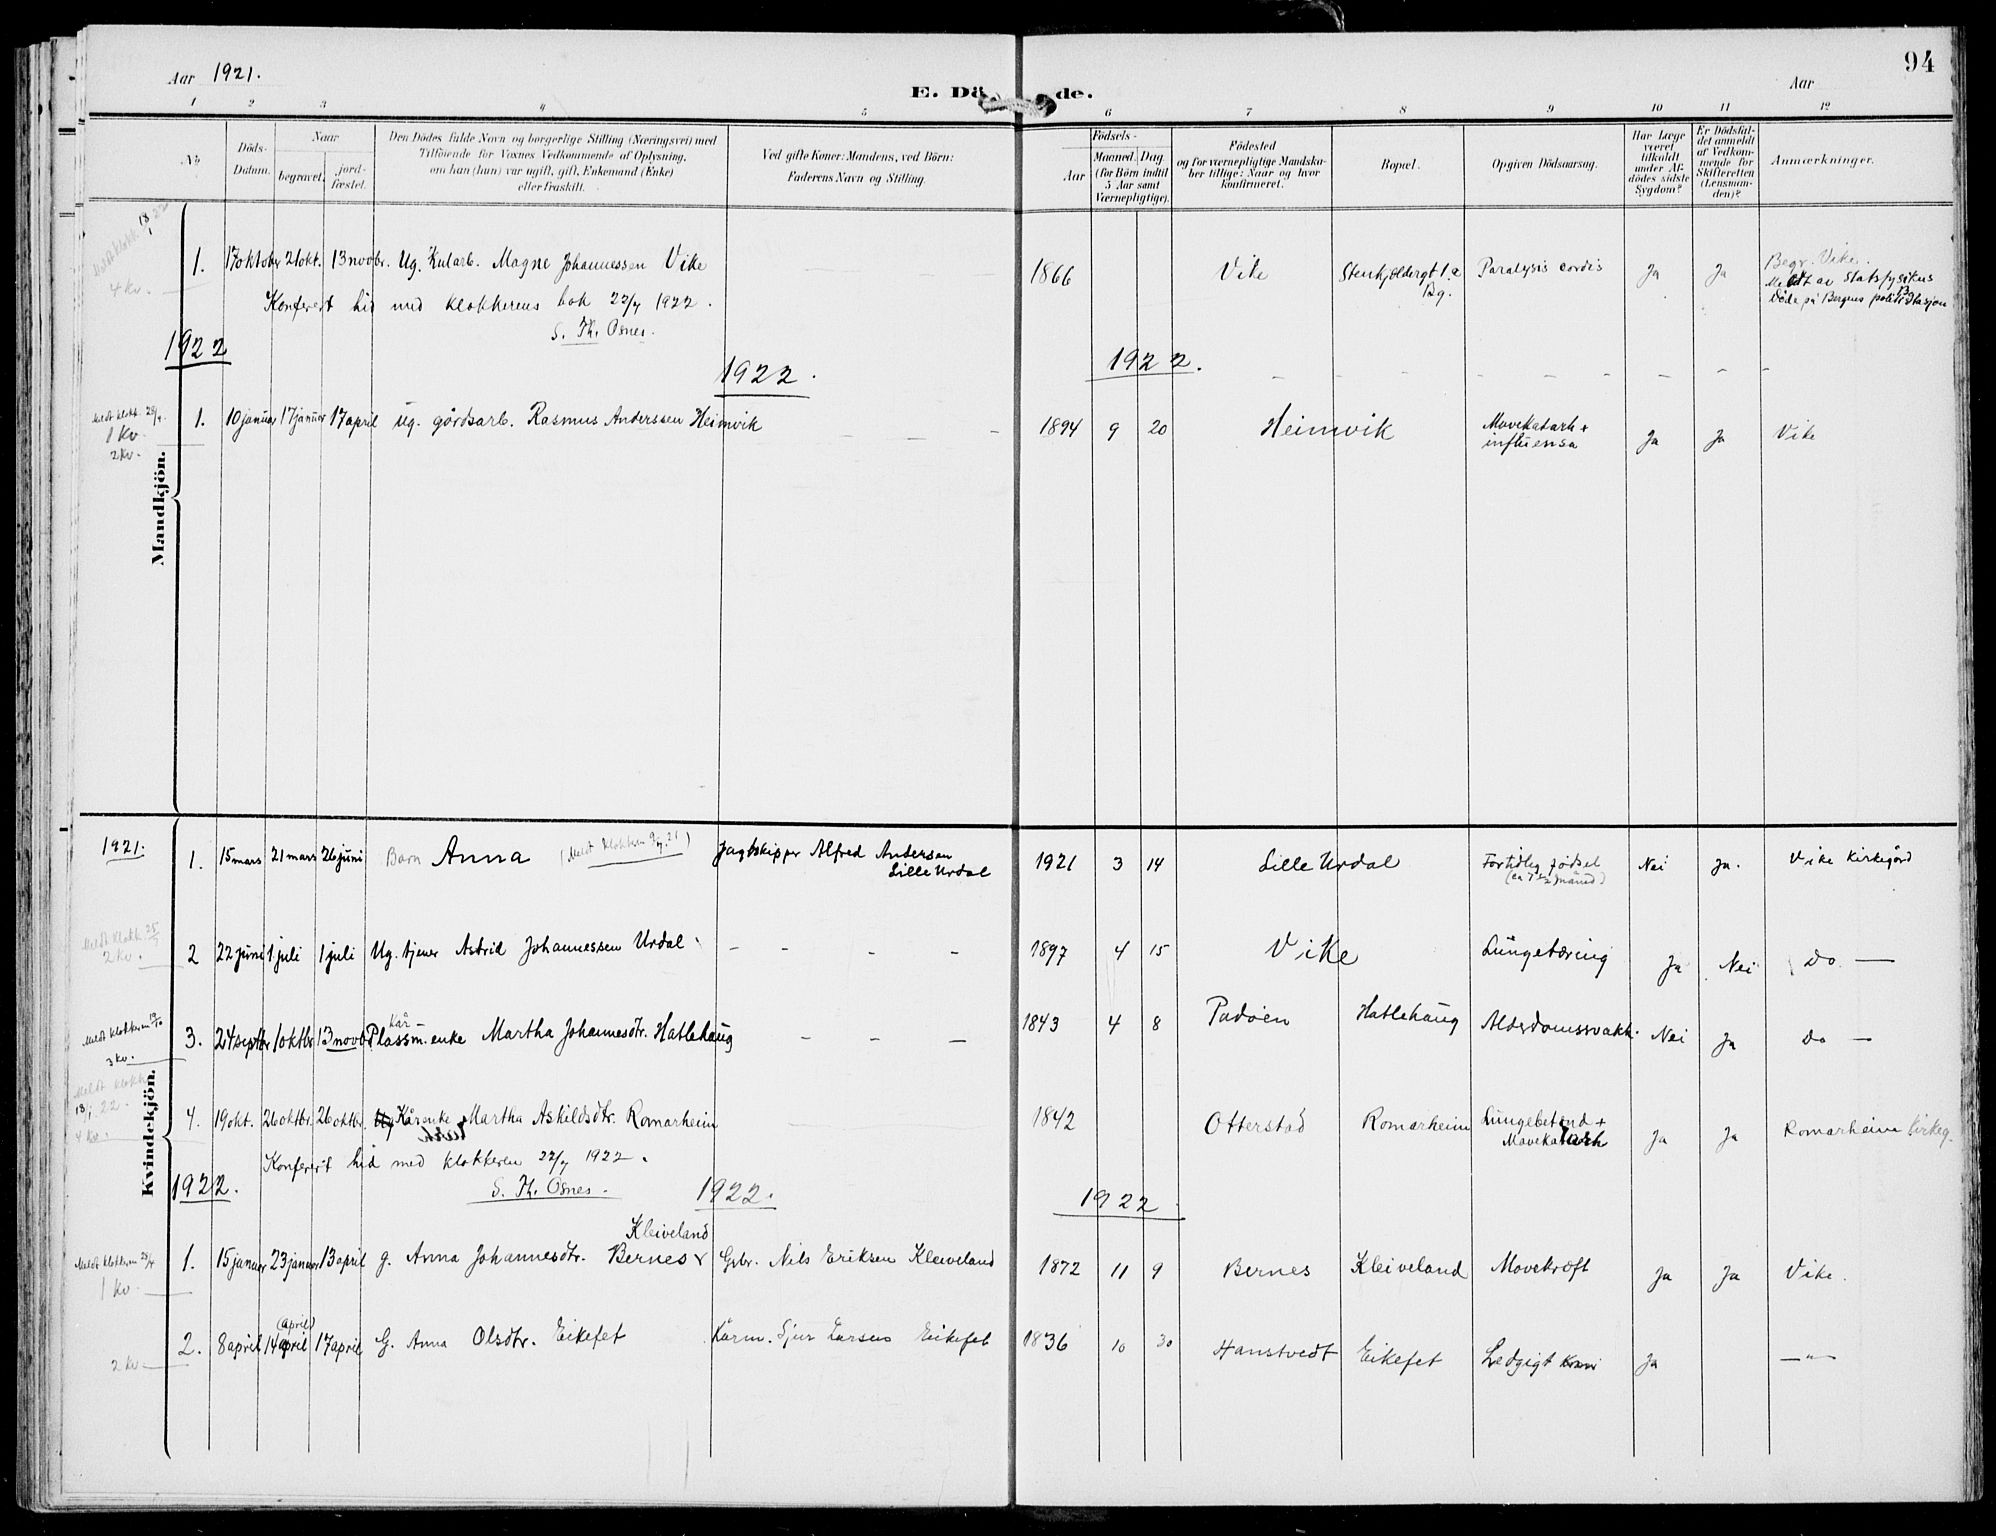 94
Aar 1921.
E. Dö de.
Aar
1 2 3 4 5 6 7 8 9 10 11 12
No
Döds-Datum.
Naar
begravet.
jordfæstet.
Den Dödes fulde Navn og borgerlige Stilling (Næringsvei) med
Tilföiende for Voxnes Vedkommende af Oplysning,
om han (hun) var ugift, gift, Enkemand (Enke)
eller fraskilt.
Ved gifte Koner: Mandens, ved Börn:
Faderens Navn og Stilling.
Födsels-
Aar
Maaned. Dag.
(for Börn indtil
5 Aar samt
Værnepligtige).
Födested
og for værnepligtige Mandskaber tillige: Naar og hvor
konfirmeret.
Bopæl.
Opgiven Dödsaarsag.
Har Læge
været
tilkaldt
under Afdödes sidste
Sygdom?
Er Dödsfaldet anmeldt
af Vedkommende for
Skifteretten
(Lensmanden)?
Anmærkninger.
Mandkjön.
4 kv.
1. 17 oktober 21 okt. 13 novbr. Ug. Kularb. Magne Johannessen Vike 1866 Vike Stenkjeldergt 1.a Bg. Paralysis cordis Ja Ja Begr. Vike.
Meldt av Statsfysikus
Döde på Bergens politistasjon
Konferert hid med klokkerens bok 22/7 1922.
S. Th. Osnes.
1922 1922. 1922.
Meldt klokk. 28/4.
1 Kv.
2 kv.
1. 10 januar 17 januar 17 april ug. gårdsarb. Rasmus Anderssen Heimvik 1894 9 20 Heimvik Mavekatarh +
influensa Ja Ja Vike
Kvindekjön.
1921.
1. 15 mars 21 mars 26 juni Barn Anna (Meldt klokkeren 9/7.21) Jagtskipper Alfred Andersen
Lille Urdal 1921 3 14 Lille Urdal Fortidlig födsel
(ca 7 1/2 måned) Nei Ja. Vike Kirkegård
Meldt klokk. 25/7
2 kv.
2 22 juni 1 juli 1 juli Ug. tjener Astrid Johannessen Urdal 1897 4 15 Vike Lungetæring Ja Nei Do
Meldt klokkeren 19/10
3 kv.
3. 24 septbr 1 oktbr 13 novbr. Plassm. enke Martha Johannesdtr. Hatlehaug 1843 4 8 Padöen Hatlehaug Alderdomssvakh. Nei Ja Do
kår
Meldt klokk.
13/1 22.
4 kv.
4. 19 okt. 26 oktbr. 26 oktbr. Ug Kårenke Martha Askildsdtr. Romarheim 1842 Otterstad Romarheim Lungebetend +
Mavekatarh Ja Ja Romarheim kirkeg.
Konferert hid med klokkeren 22/7 1922.
S. Th. Osnes.
1922. 1922. 1922.
Meldt klokkeren 28/4
1 Kv.
Kleiveland
1. 15 januar 23 januar 13 april g. Anna Johannesdtr. Bernes Gbr. Nils Eriksen Kleiveland 1872 11 9 Bernes Kleiveland Mavekræft Ja Ja Vike.
2 kv
(april)
2. 8 april 14 april 17 april G. Anna Olsdtr. Eikefet Kårm. Sjur Larsen Eikefet 1836 10 30 Hanstvedt Eikefet Ledgigt Ja —"—